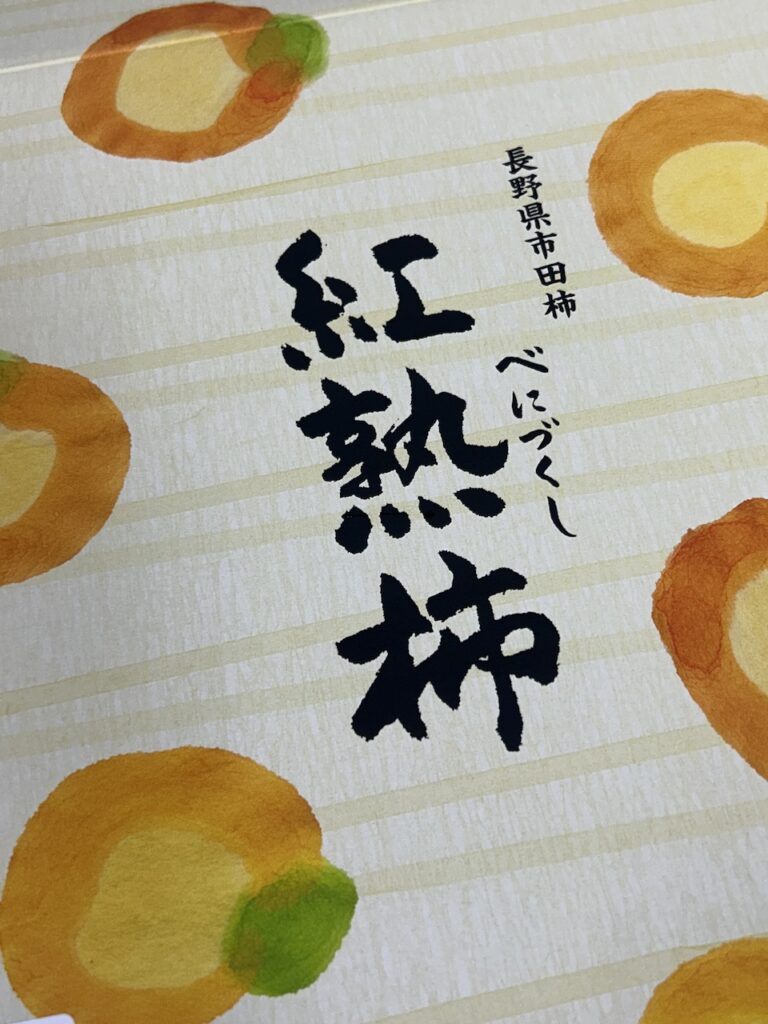 長野県市田柿
べにづくし
紅熟柿